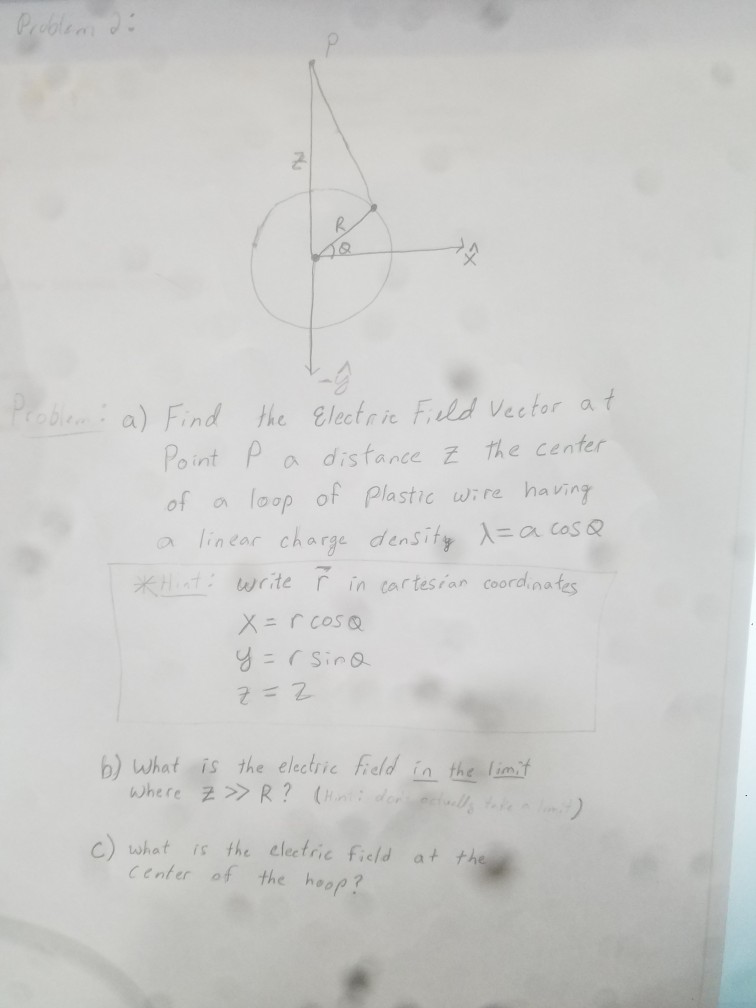 Problem 2:
P
z
R
θ
x̂
-ŷ
Problem: a) Find the Electric Field Vector at
Point P a distance z the center
of a loop of Plastic wire having
a linear charge density λ = a cos θ
*Hint: write r⃗ in cartesian coordinates
x = r cos θ
y = r sin θ
z = z
b) What is the electric field in the limit
where z >> R? (Hint: don't actually take a limit)
c) what is the electric field at the
center of the hoop?